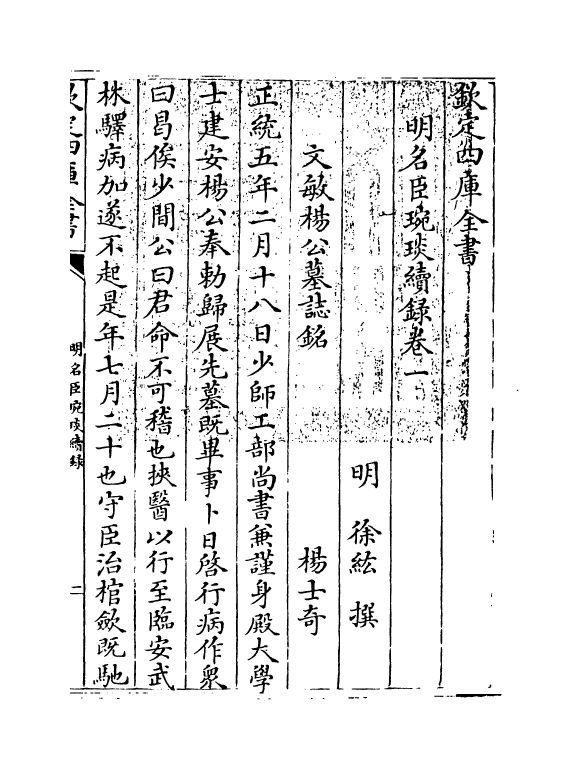 欽定四庫全書
明名臣琬琰續錄卷一
明　徐紘　撰
文敏楊公墓誌銘　楊士奇
正統五年二月十八日少師工部尚書兼謹身殿大學
士建安楊公奉勅歸展先墓既畢事卜日啓行病作衆
曰曷俟少間公曰君命不可稽也挾醫以行至臨安武
林驛病加遂不起是年七月二十也守臣治棺歛既馳
欽定四庫全書
明名臣琬琰續錄
二